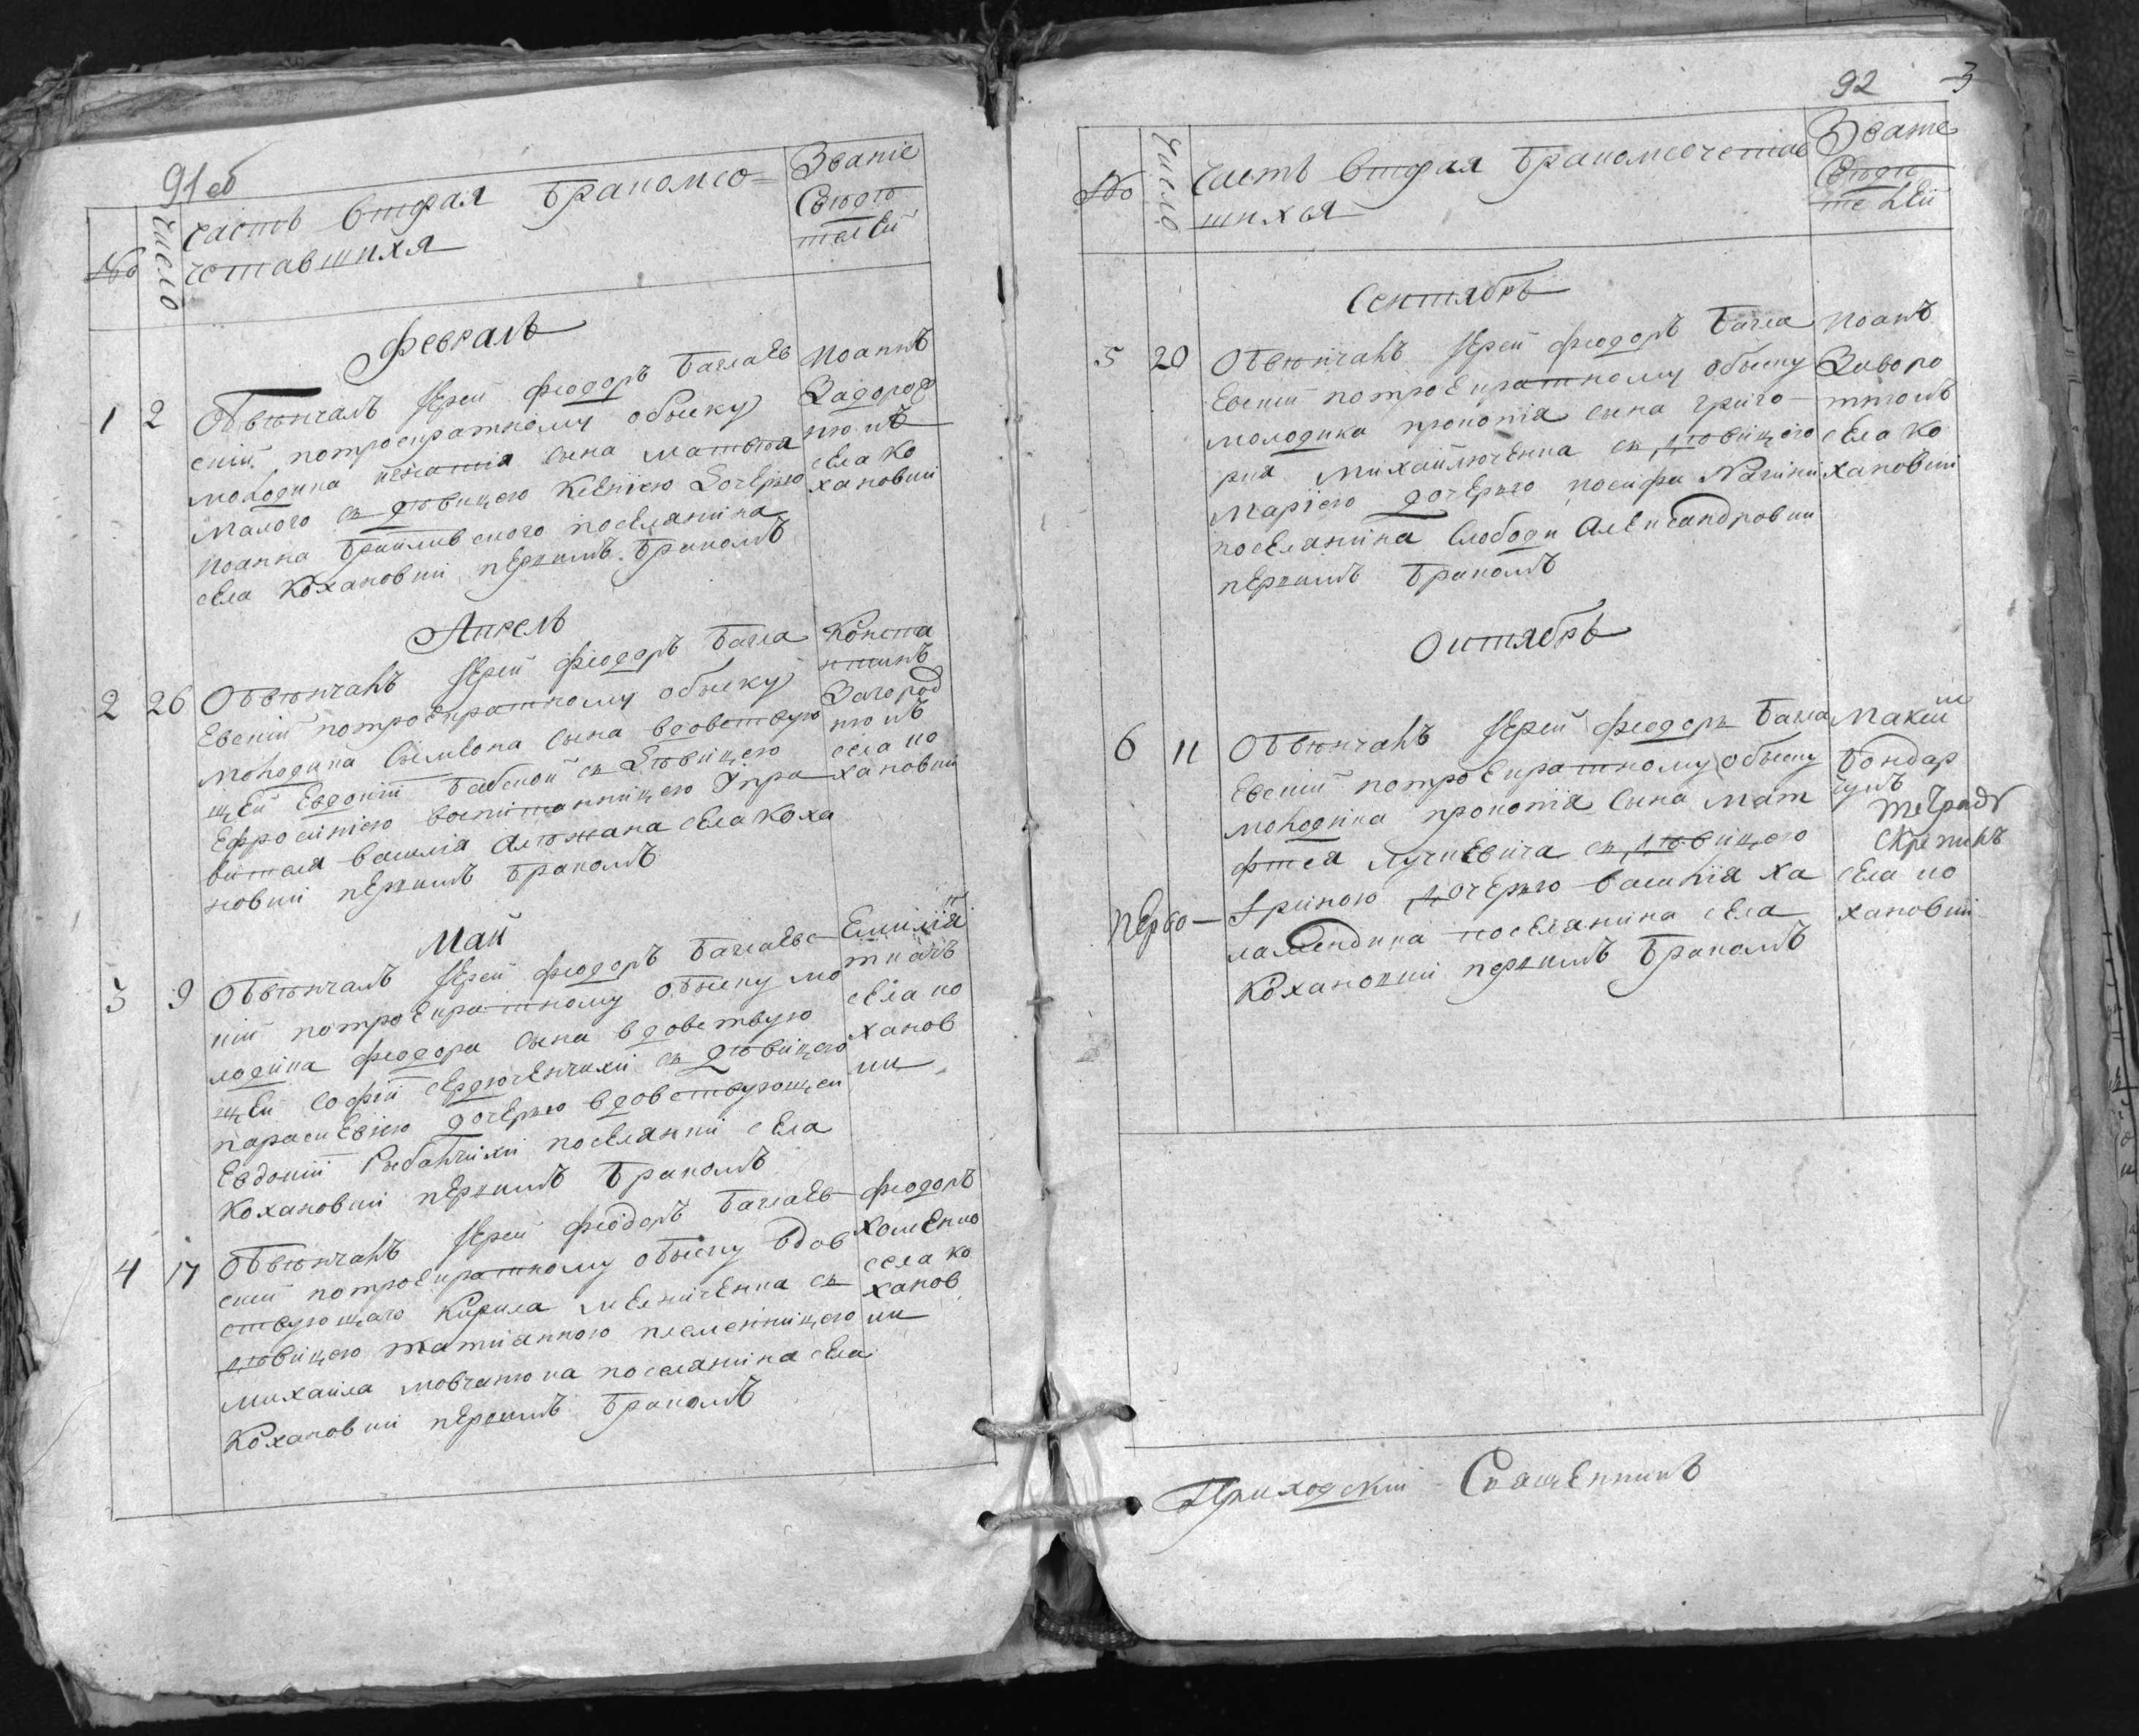 91об
№
Число
Часть вторая бракомсо=
четавшихя
Званіе
Свѣдѣ
телей
Февраль
1 2 Обвѣнчалъ Іерей Феодоръ Баглаев
скій потроекратному обыску
молодика Игнатія сына Матвѣя
Малого съ дѣвицею Ксеніею дочерью
Иоанна поселянина
села Кохановки первимъ бракомъ
Иоаннъ
села Ко
хановки
Апрель
2 26 Обвѣнчалъ Іерей Феодоръ Багла
евскій потроекратному обыску
молодика Сымеона сына вдовствую
щей Евдокіи Бабской съ дѣвицею
Ефросиніею воспитанницею
вителя Василія села Коха
новки первимъ бракомъ
Конста
нтинъ
Загород
нюкъ
села ко
хановки
Май
3 9 Обвѣнчалъ Іерей Феодоръ Баглаевс
кій потроекратному обыску мо
лодика Феодора сына вдовствую
щей Софіи Сердюченчихи съ дѣвицею
Параскевіею дочерью вдовствующеи
Евдокіи поселянки села
Кохановки первимъ бракомъ
села ко
ханов
ки
4 17 Обвѣнчалъ Іерей Феодоръ Баглаев
скій потроекратному обыску вдов
ствующаго Кирила Мелниченка съ
дѣвицею татианною племенницею
Михаила Мовчанюка поселянина села
Кохановки первимъ бракомъ
Феодоръ
Хоменко
села ко
ханов
ки
92 3
№
Число
Часть вторая бракомсочетав
шихся
Званіе
Свѣдѣ
телей
Сентябрь
5 20 Обвѣнчалъ Іерей Феодоръ Багла
евскій потроекратному обыску
молодика прокопія сына Григо
рия Михайлюченка съ дѣвицею
Маріею дочерью Иосифа
поселянина Слободи Александровки
первимъ бракомъ
Иоанъ
села Ко
хановки
Октябрь
6 11 Обвѣнчалъ Іерей Феодоръ Багла
евскій потроекратному обыску
молодика прокопія сына Мат
фтея Луцкевича съ дѣвицею
Іриною дочерью Василія Ха
поселянина села
Кохановки первимъ бракомъ
Максим
Бондар
цукъ
села ко
хановки
Перво
тетрадь
скрепилъ
Приходскій Священникъ